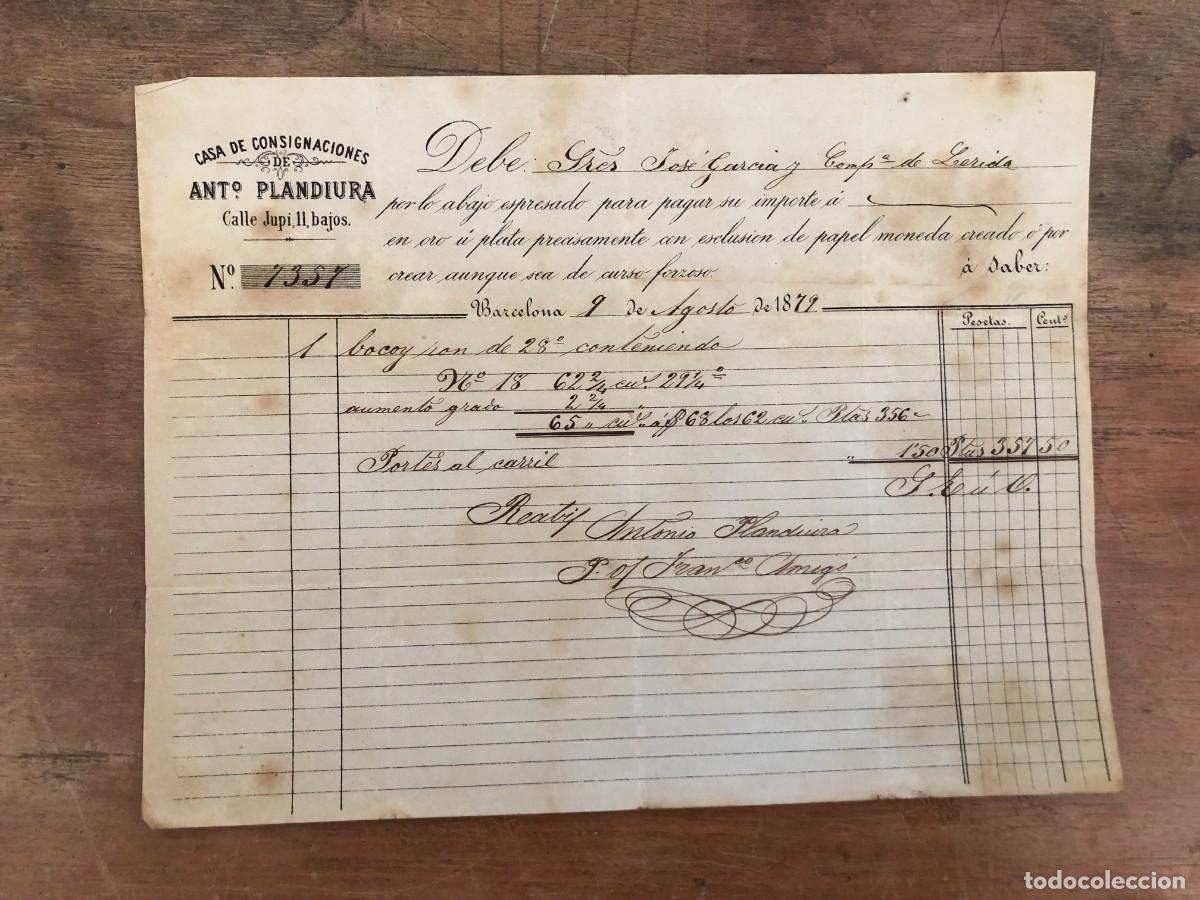 CASA DE CONSIGNACIONES
DE
ANTº PLANDIURA
Calle Jupi, 11, bajos.
Nº 7357
Debe: Sres José Garcia y Compª de Lerida
por lo abajo espresado para pagar su importe á
en oro ú plata precisamente con esclusion de papel moneda creado ó por
crear aunque sea de curso forzoso. á Saber:
Barcelona 9 de Agosto de 1879
Pesetas. Centº
1 bocoy ron de 28º conteniendo
Nº 18 62 2/4 cu. 29 1/4º
aumento grado 2 2/4 "
65 " cu. á $ 68 los 62 cu. Ptas 356"
Portes al carril " 1'50 Ptas 357 50
S. E. ú O.
Recibí
Antonio Plandiura
P. o/ Franco Amigó
todocoleccion